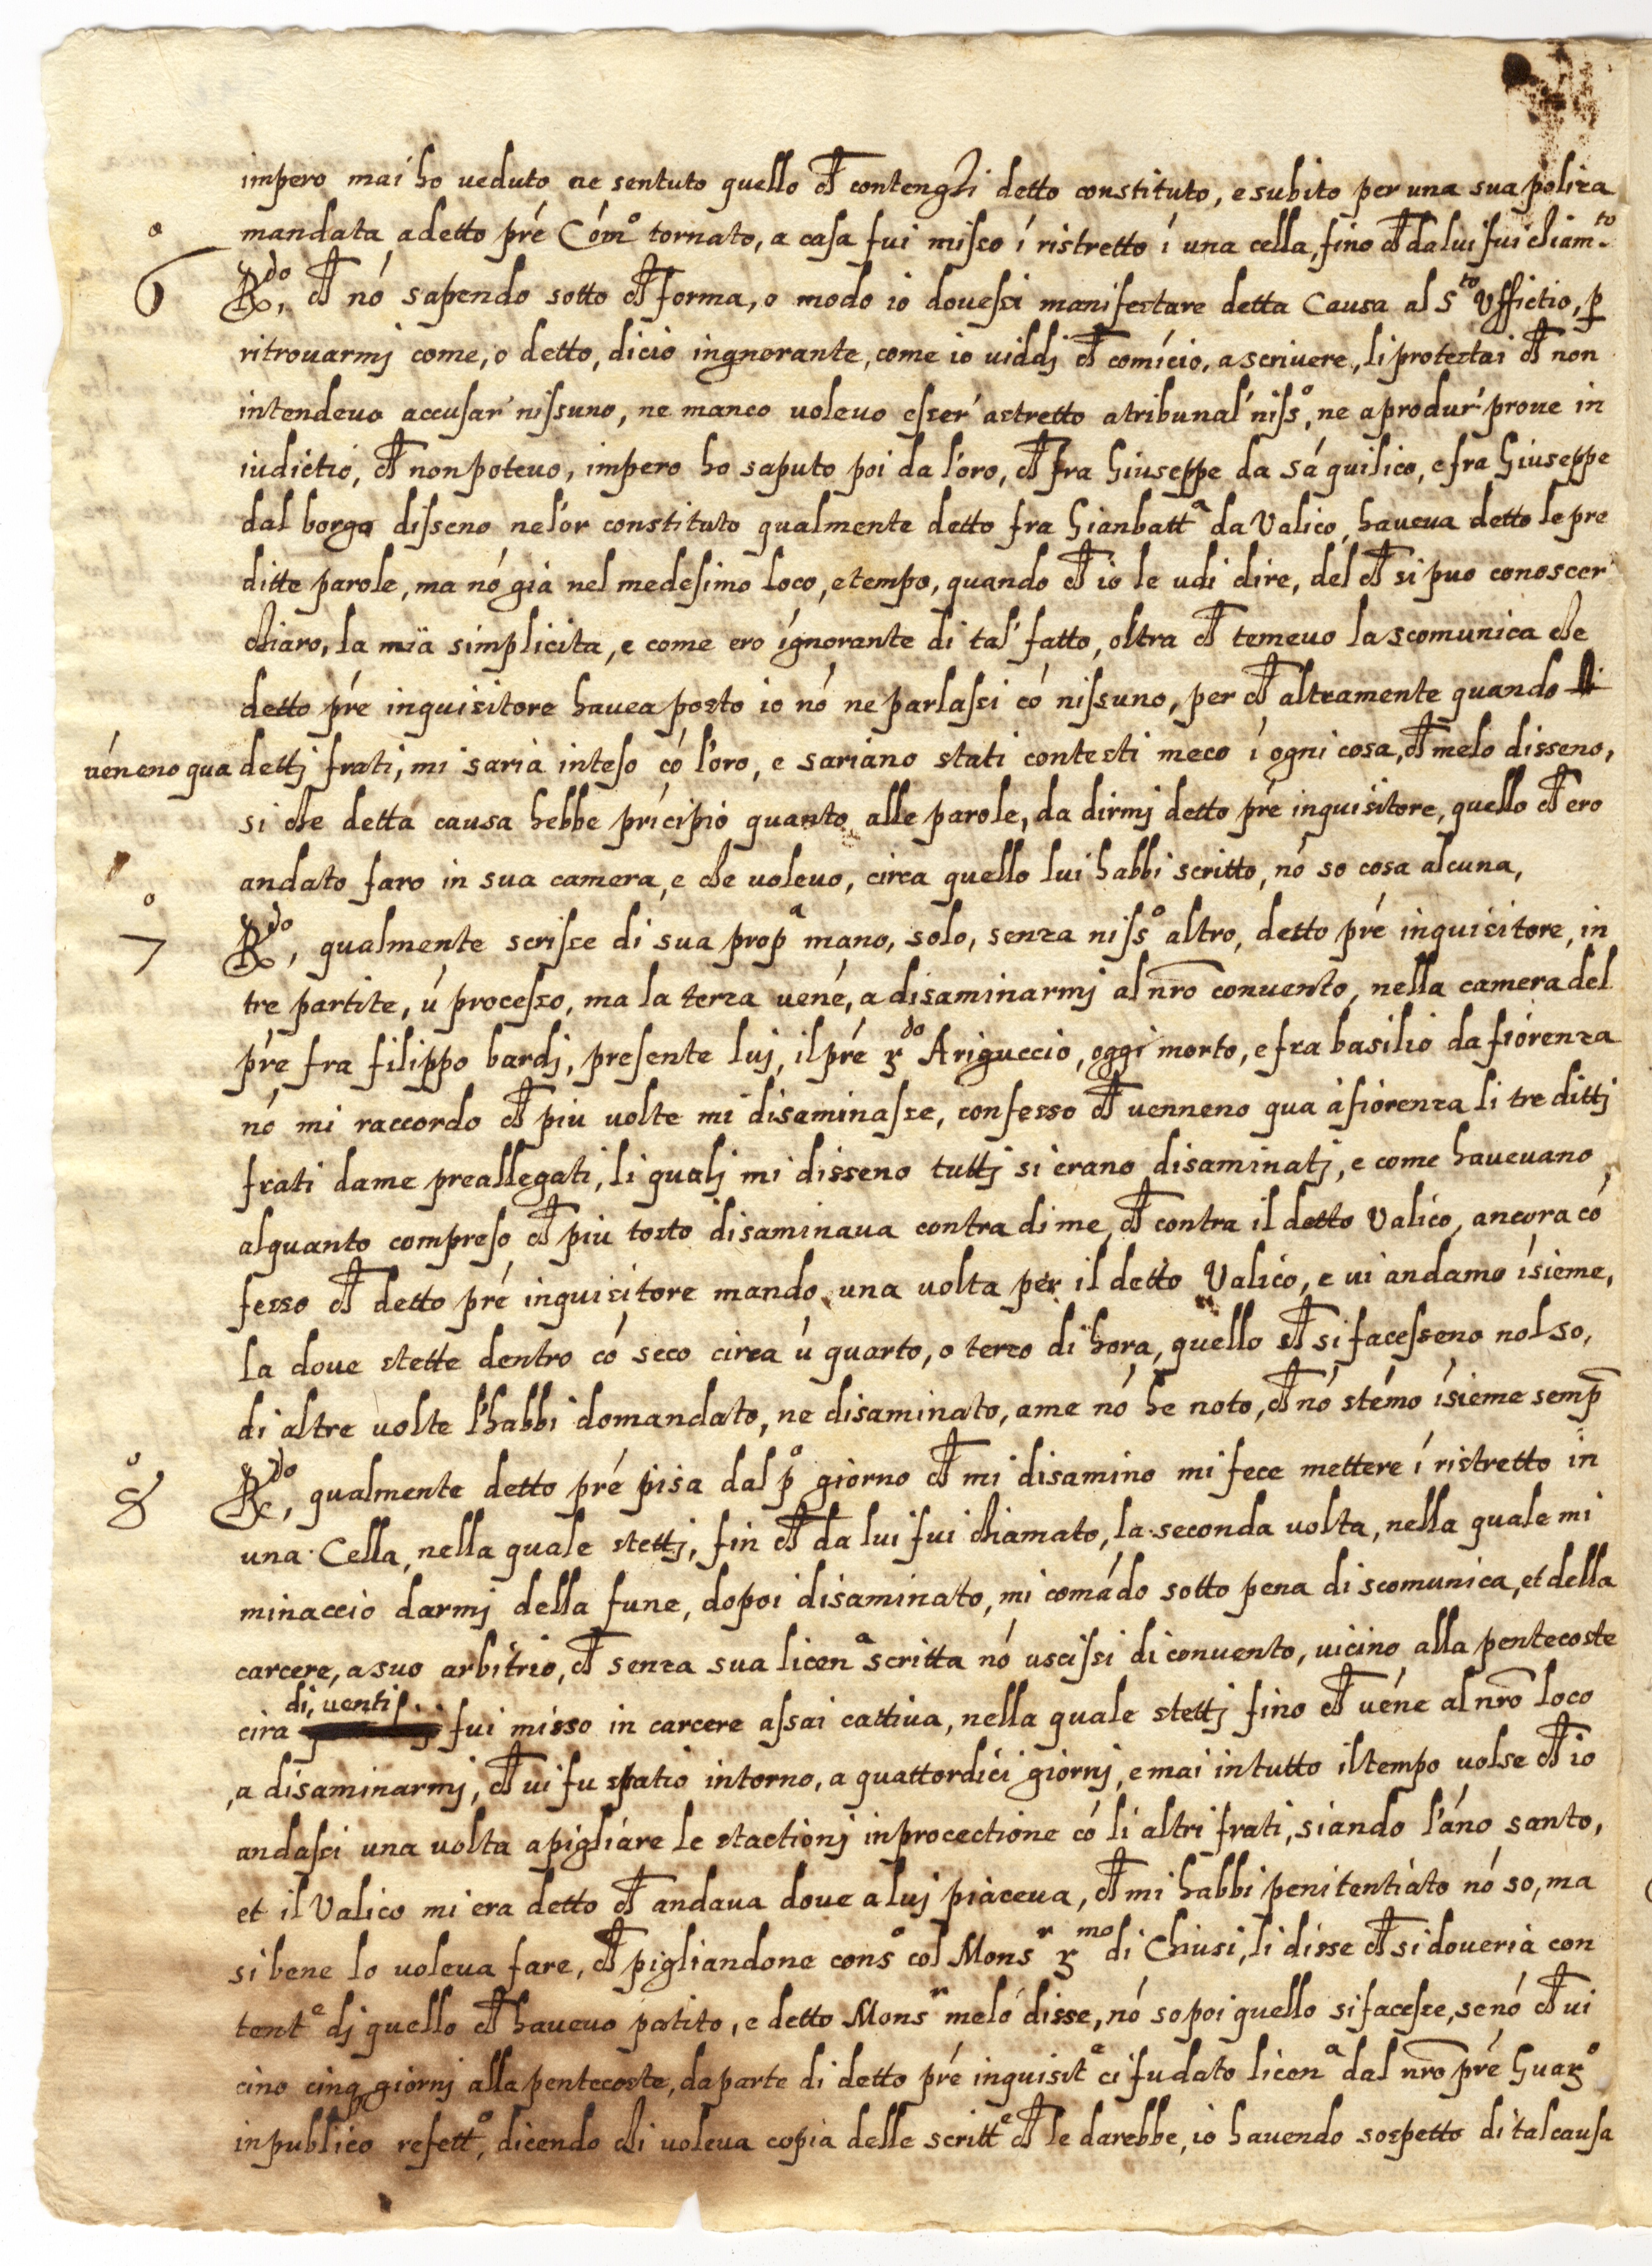 impero mai ho ueduto ne sentuto quello ch contenghi detto constituto, e subito per una sua poliza
mandata a detto pre Comº tornato, a casa fui misso i ristretto i una cella, fino ch da lui fui chiamto
6º
Rdo, ch nó sapendo sotto ch forma, o modo io douessi manifestare detta Causa al Sto Vffictio, p
ritrouarmj come, o detto, dicio ingnorante, come io uiddj ch comício, a scriuere, li protestai ch non
intendeuo accusar' nissuno, ne manco uoleuo esser' astretto a tribunal' nissº, ne a produr' proue in
iudictio, ch non poteuo, impero ho saputo poi da l'oro, ch fra Giuseppe da Sá quilico, e fra Giuseppe
dal borgo disseno nel'or constituto qualmente detto fra Gianbatta da Valico, haueua detto le pre
ditte parole, ma nó già nel medesimo loco, e tempo, quando ch io le udi dire, del ch si puo conoscer
chiaro, la mia simplicita, e come ero ignorante di tal' fatto, oltra ch temeuo la scomunica che
detto pré inquisitore hauea posto io nó ne parlassi có nissuno, per ch altramente quando
uéneno qua dettj frati, mi sarià inteso có l'oro, e sariano stati contesti meco i ogni cosa, ch melo disseno,
si che detta causa hebbe prícipio quanto alle parole, da dirmj detto pré inquisitore, quello ch ero
andato faro in sua camera, e che uoleuo, circa quello lui habbi scritto, nó so cosa alcuna,
7º
Rdo, qualmente scrisse di sua propa mano, solo, senza nissº altro, detto pré inquisitore, in
tre partite, ú processo, ma la terza uené, a disaminarmj al nro conuento, nella camera del
pre fra filippo bardj, presente luj, il pré rdo Ariguccio, oggi morto, e fra basilio da fiorenza
nó mi raccordo ch piu uolte mi disaminasse, confesso ch uenneno qua à fiorenza li tre dittj
frati dame preallegati, li qualj mi disseno tuttj si erano disaminatj, e come haueuano
alquanto compreso ch piu tosto disaminaua contra di me, ch contra il detto Valico, ancora có
fesso ch detto pré inquisitore mando una uolta per il detto Valico, e ui andamo ísieme,
la doue stette dentro có seco circa ú quarto, o terzo di hora, quello ch si facesseno nol so,
di altre uolte l'habbi domandato, ne disaminato, ame nó he noto, ch nó stémo ísieme semp
8º
Rdo, qualmente detto pré pisa dal pº giorno ch mi disamino mi fece mettere í ristretto in
una Cella, nella quale stettj, fin ch da lui fui chiamato, la seconda uolta, nella quale mi
minacciò darmj della fune, dopoi disaminato, mi comádo sotto pena di scomunica, et della
carcere, a suo arbitrio, ch senza sua licena scritta nó uscissi di conuento, uicino alla pentecoste
cira di, uenti fui misso in carcere assai cattiua, nella quale stettj fino ch uéne al nro loco
,a disaminarmj, ch ui fu spatio intorno, a quattordici giornj, e mai in tutto il tempo uolse ch io
andassi una uolta a pigliáre le stactionj in procectione có li altri frati, siando l'áno santo,
et il Valico mi era detto ch andaua doue a luj piaceua, ch mi habbi penitentiato nó so, ma
si bene lo uoleua fare, ch pigliandone consº col Monsr rmo di Chiusi, li disse ch si doueria con
tente dj quello ch haueuo patito, e detto Monsr meló disse, nó so poi quello si facesse, se nó ch ui
cino cinq giornj alla pentecoste, da parte di detto pré inquisite ci fu dato licena dal nro pré Guarº
in publico refettº, dicendo chi uoleua copia delle scritte ch le darebbe, io hauendo sospetto di tal causa